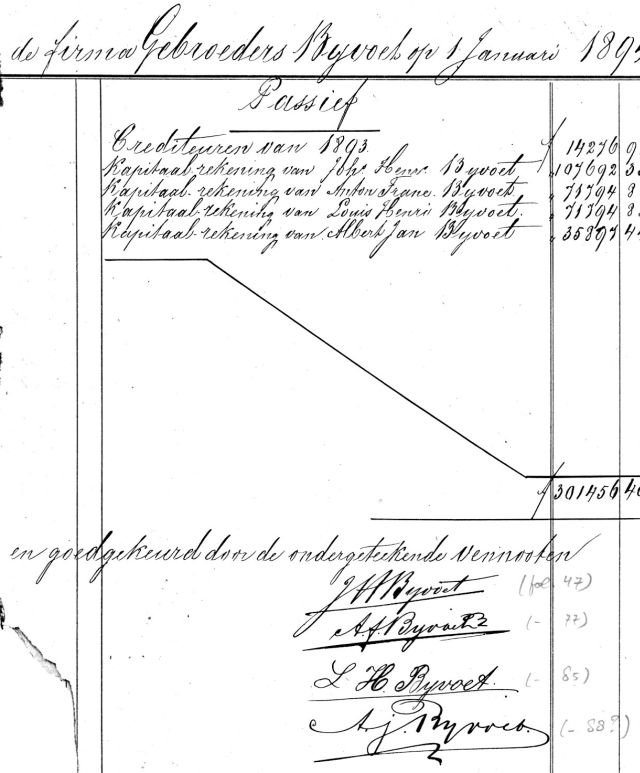 de firma Gebroeders Byvoet op 1 Januari 189
Passief
Crediteuren van 1893. ƒ 14276 9
Kapitaal-rekening van Johs Henri Byvoet „ 107692 3
Kapitaal-rekening van Anton Franc. Byvoet „ 71794 8
Kapitaal-rekening van Louis Henri Byvoet. „ 71794 8
Kapitaal-rekening van Albert Jan Byvoet „ 35897 4
ƒ 301456 4
en goedgekeurd door de ondergeteekende vennooten
JH Byvoet (fol. 47)
A.f. Byvoet (- 77)
L H. Byvoet. (- 85)
A.j. Byvoet. (- 88?)